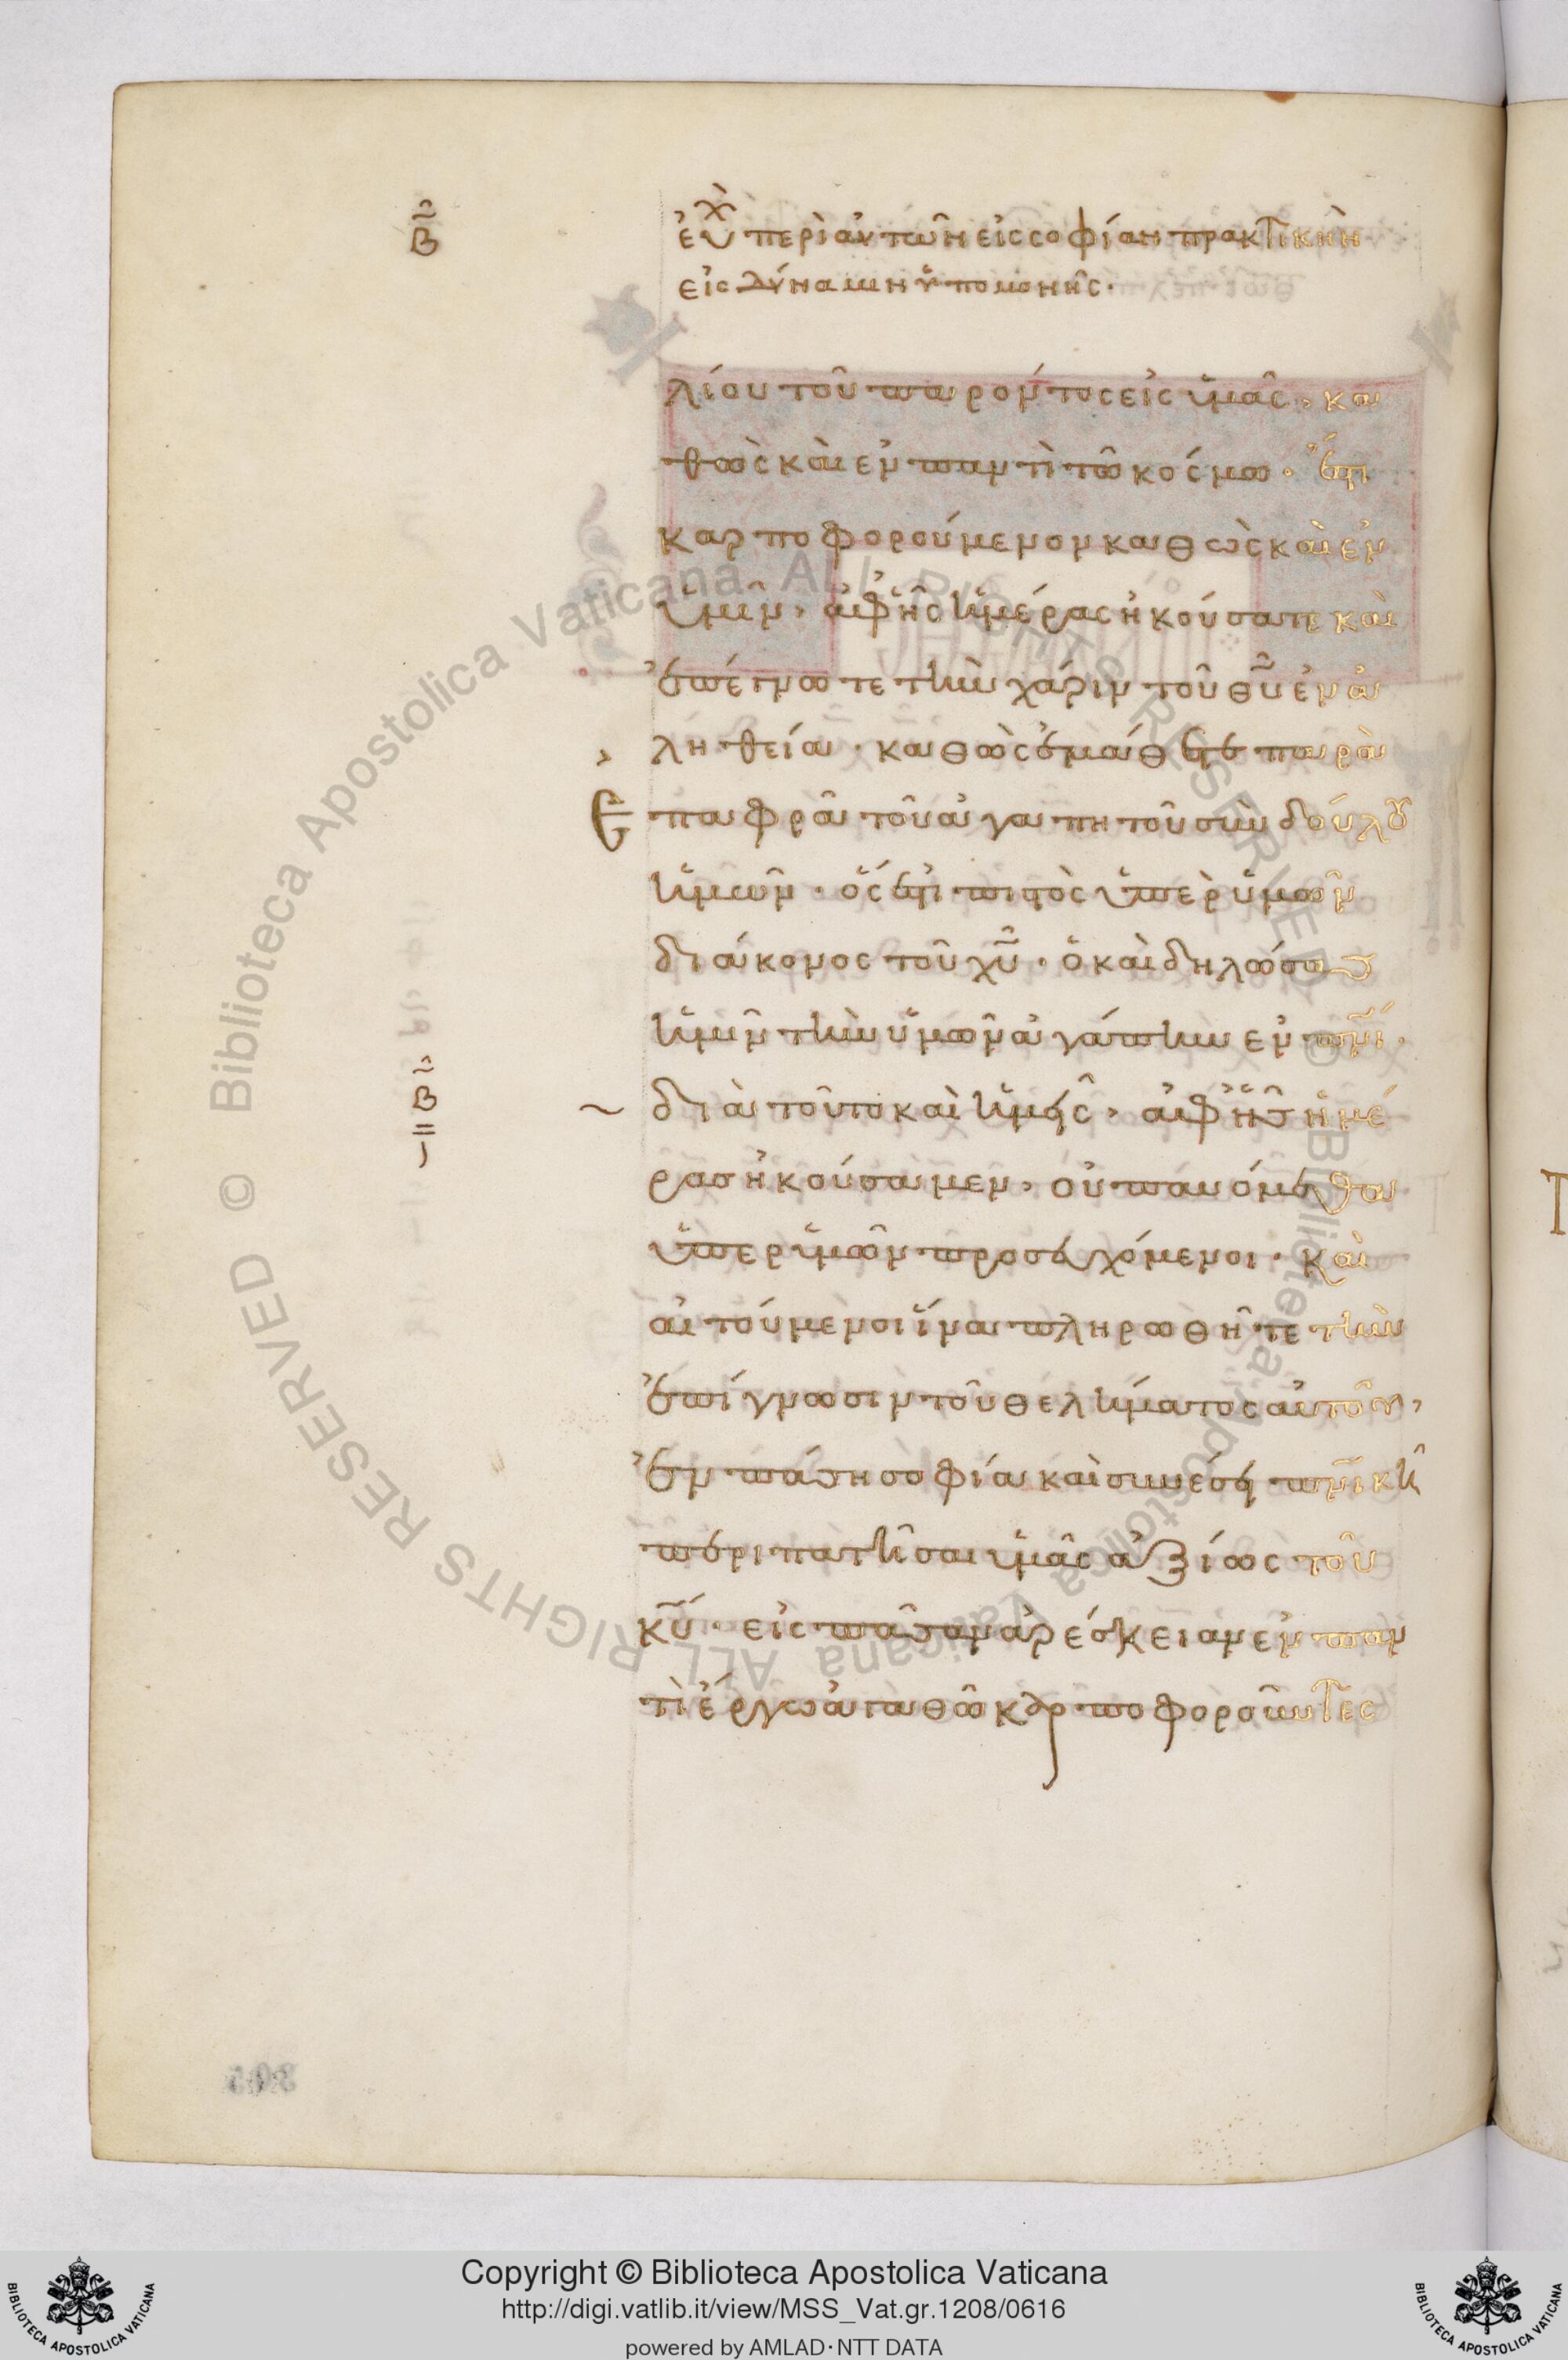 β
εὐχὴ περὶ αὐτῶν εἰς σοφίαν πρακτικὴν
εἰς δύναμιν ὑπομονῆς·
λίου τοῦ παρόντος εἰς ὑμᾶς, κα
θὼς καὶ ἐν παντὶ τῶ κόσμω· ἔστι
καρποφορούμενον καθὼς καὶ ἐν
ὑμῖν, ἀφ' ἧς ἡμέρας ἠκούσατε καὶ
ἐπέγνωτε τὴν χάριν τοῦ θυ ἐν ἀ
ληθεία· καθὼς ἐμάθετε παρὰ
Επαφρᾶ τοῦ ἀγαπητοῦ συνδούλου
ἡμῶν· ὅς ἐστι πιστὸς ὑπὲρ ὑμῶν
διάκονος τοῦ χυ· ὁ καὶ δηλώσας
ἡμῖν τὴν ὑμῶν ἀγάπην ἐν πνι·
β
διὰ τοῦτο καὶ ἡμεῖς, ἀφ' ἧς ἡμέ
ρας ἠκούσαμεν, οὐ παυόμεθα
ὑπὲρ ὑμῶν προσευχόμενοι· καὶ
αἰτούμενοι ἵνα πληρωθῆτε τὴν
ἐπίγνωσιν τοῦ θελήματος αὐτοῦ,
ἐν πάση σοφία καὶ συνέσει πνικῆ
περιπατῆσαι ὑμᾶς ἀξίως τοῦ
κυ· εἰς πᾶσαν ἀρέσκειαν ἐν παν
τὶ ἔργω ἀγαθῶ καρποφοροῦντες
Biblioteca Apostolica Vaticana ALL RIGHTS RESERVED © Biblioteca Apostolica Vaticana ALL RIGHTS RESERVED ©
Copyright © Biblioteca Apostolica Vaticana
http://digi.vatlib.it/view/MSS_Vat.gr.1208/0616
powered by AMLAD·NTT DATA
BIBLIOTECA APOSTOLICA VATICANA
BIBLIOTECA APOSTOLICA VATICANA